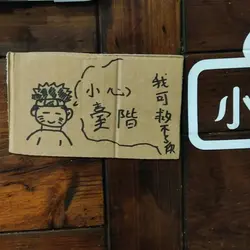 小心
臺階
我可救不了你
小